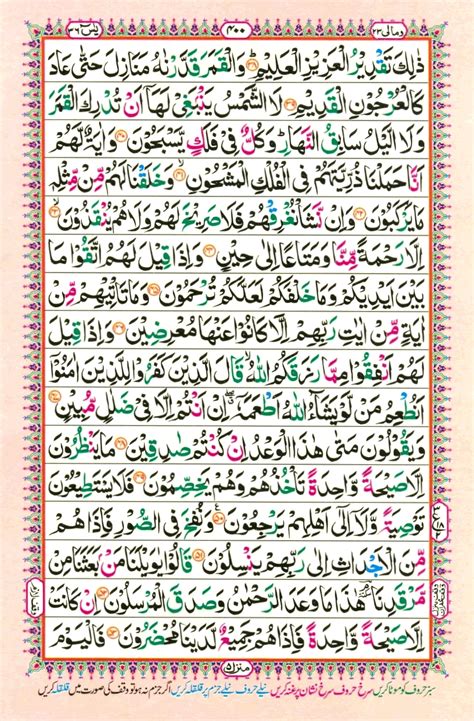 ومالی ۲۳
۴۰۰
یٰسٓ ۳۶
ذٰلِكَ تَقْدِيْرُ الْعَزِيْزِ الْعَلِيْمِ ۝ وَالْقَمَرَ قَدَّرْنٰهُ مَنَازِلَ حَتّٰى عَادَ
كَالْعُرْجُوْنِ الْقَدِيْمِ ۝ لَا الشَّمْسُ يَنْۢبَغِيْ لَهَاۤ اَنْ تُدْرِكَ الْقَمَرَ
وَلَا الَّيْلُ سَابِقُ النَّهَارِ ؕ وَكُلٌّ فِيْ فَلَكٍ يَّسْبَحُوْنَ ۝ وَاٰيَةٌ لَّهُمْ
اَنَّا حَمَلْنَا ذُرِّيَّتَهُمْ فِي الْفُلْكِ الْمَشْحُوْنِ ۝ وَخَلَقْنَا لَهُمْ مِّنْ مِّثْلِهٖ
مَا يَرْكَبُوْنَ ۝ وَاِنْ نَّشَاْ نُغْرِقْهُمْ فَلَا صَرِيْخَ لَهُمْ وَلَا هُمْ يُنْقَذُوْنَ ۝
اِلَّا رَحْمَةً مِّنَّا وَمَتَاعًا اِلٰى حِيْنٍ ۝ وَاِذَا قِيْلَ لَهُمُ اتَّقُوْا مَا
بَيْنَ اَيْدِيْكُمْ وَمَا خَلْفَكُمْ لَعَلَّكُمْ تُرْحَمُوْنَ ۝ وَمَا تَاْتِيْهِمْ مِّنْ
اٰيَةٍ مِّنْ اٰيٰتِ رَبِّهِمْ اِلَّا كَانُوْا عَنْهَا مُعْرِضِيْنَ ۝ وَاِذَا قِيْلَ
لَهُمْ اَنْفِقُوْا مِمَّا رَزَقَكُمُ اللّٰهُ ۙ قَالَ الَّذِيْنَ كَفَرُوْا لِلَّذِيْنَ اٰمَنُوْۤا
اَنُطْعِمُ مَنْ لَّوْ يَشَآءُ اللّٰهُ اَطْعَمَهٗۤ ۖ اِنْ اَنْتُمْ اِلَّا فِيْ ضَلٰلٍ مُّبِيْنٍ ۝
وَيَقُوْلُوْنَ مَتٰى هٰذَا الْوَعْدُ اِنْ كُنْتُمْ صٰدِقِيْنَ ۝ مَا يَنْظُرُوْنَ
اِلَّا صَيْحَةً وَّاحِدَةً تَاْخُذُهُمْ وَهُمْ يَخِصِّمُوْنَ ۝ فَلَا يَسْتَطِيْعُوْنَ
تَوْصِيَةً وَّلَاۤ اِلٰۤى اَهْلِهِمْ يَرْجِعُوْنَ ۝ وَنُفِخَ فِي الصُّوْرِ فَاِذَا هُمْ
مِّنَ الْاَجْدَاثِ اِلٰى رَبِّهِمْ يَنْسِلُوْنَ ۝ قَالُوْا يٰوَيْلَنَا مَنْۢ بَعَثَنَا مِنْ
مَّرْقَدِنَا ۘ هٰذَا مَا وَعَدَ الرَّحْمٰنُ وَصَدَقَ الْمُرْسَلُوْنَ ۝ اِنْ كَانَتْ
اِلَّا صَيْحَةً وَّاحِدَةً فَاِذَا هُمْ جَمِيْعٌ لَّدَيْنَا مُحْضَرُوْنَ ۝ فَالْيَوْمَ
منزل ۵
سبز حروف کو موٹا کریں سرخ حروف سرخ نشان پر غنہ کریں نیلے حروف نیلے جزم پر قلقلہ کریں اگر جزم نہ ہو تو وقف کی صورت میں قلقلہ کریں